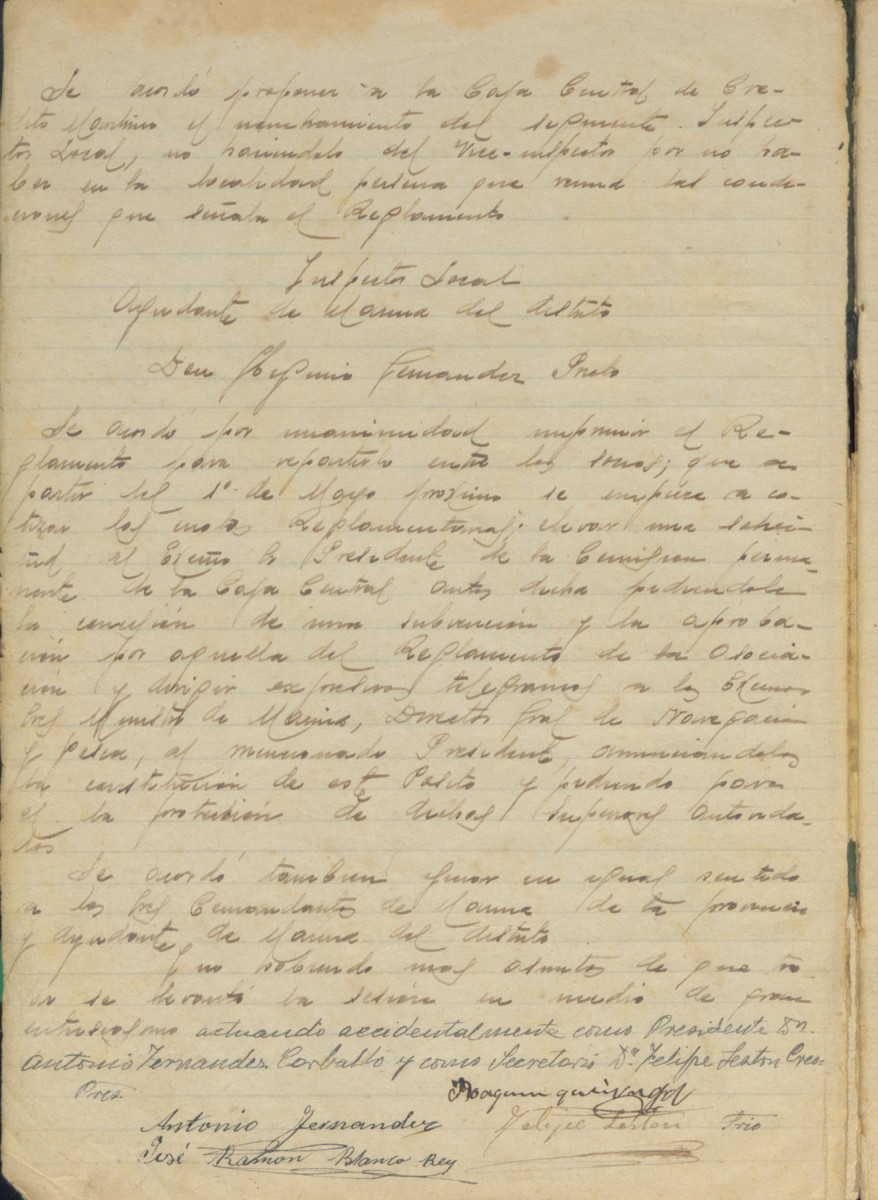 Se acordó proponer a la Caja Central de Cre-
dito Maritimo el nombramiento del siguiente Inspec-
tor Local, no haciendolo del Vice-inspector por no ha-
ber en la localidad persona que reuna las condi-
ciones que señala el Reglamento
Inspector Local
Ayudante de Marina del distrito
Don Higinio Fernandez Prieto
Se acordó por unanimidad imprimir el Re-
glamento para repartirlo entre los socios; que a
partir del 1º de Mayo proximo se empiece a co-
tizar las cuotas Reglamentarias; elevar una solici-
tud al Excmo Sr Presidente de la Comision perma-
nente de la Caja Central antes dicha pidiendole
la concesión de una subvención y la aproba-
ción por aquella del Reglamento de la Asocia-
ción y dirigir expresivos telegramas a los Excmos
Sres Ministro de Marina, Director Gral de Navegación
y Pesca, al mencionado Presidente, anunciandoles
la constitución de este Posito y pidiendo para
el la protección de dichas superiores autorida-
des
Se acordó tambien en igual sentido
a los Sres Comandantes de Marina de la provincia
y Ayudante de Marina del distrito
Y no habiendo mas asuntos de que tra-
tar se levantó la sesión en medio de gran
entusiasmo actuando accidentalmente como Presidente Dn.
Antonio Fernandez Carballo y como Secretario Dn Felipe Leston Creo-
Pres.
Joaquin
Antonio Fernandez Felipe Leston Srio
José Ramon Blanco Rey